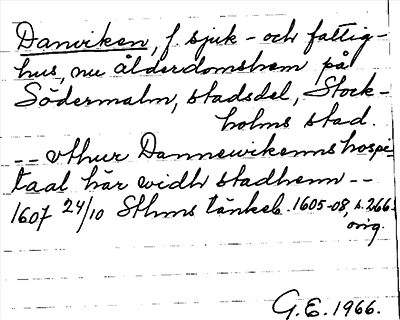 Danviken, f. sjuk- och fattig-
hus, nu ålderdomshem på
Södermalm, stadsdel, Stock-
holms stad.
-- vthur Dannewikenns hospi-
taal här widh stadhenn --
1607 24/10 Sthms tänkeb. 1605-08, s. 266.
orig.
G.E. 1966.